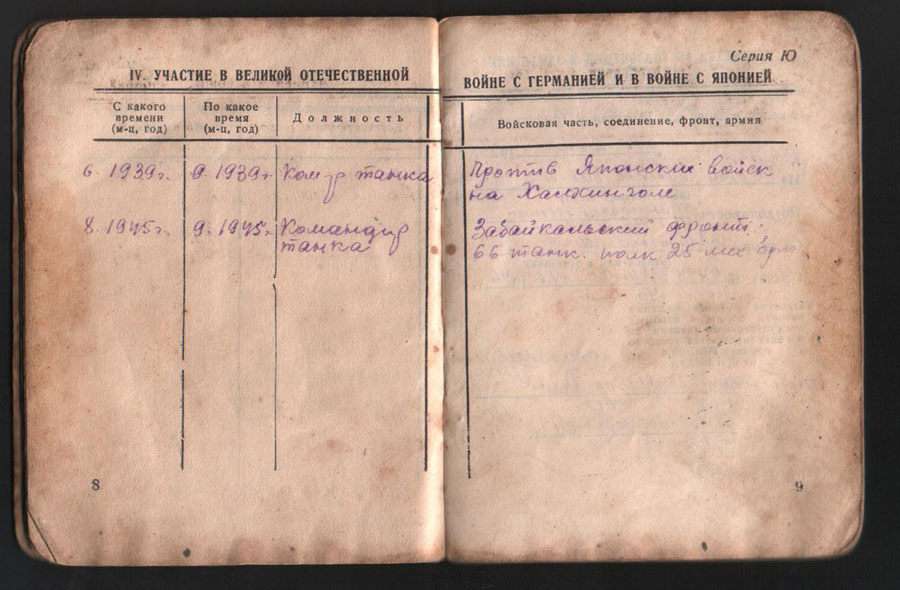 IV. УЧАСТИЕ В ВЕЛИКОЙ ОТЕЧЕСТВЕННОЙ
С какого времени (м-ц, год)
По какое время (м-ц, год)
Должность
6. 1939 г. 9. 1939 г. Ком-р танка
8. 1945 г. 9. 1945 г. Командир
танка
8
Серия Ю
ВОЙНЕ С ГЕРМАНИЕЙ И В ВОЙНЕ С ЯПОНИЕЙ
Войсковая часть, соединение, фронт, армия
Против Японских войск
на Халхинголе
Забайкальский фронт
66 танк. полк 25 мех
9